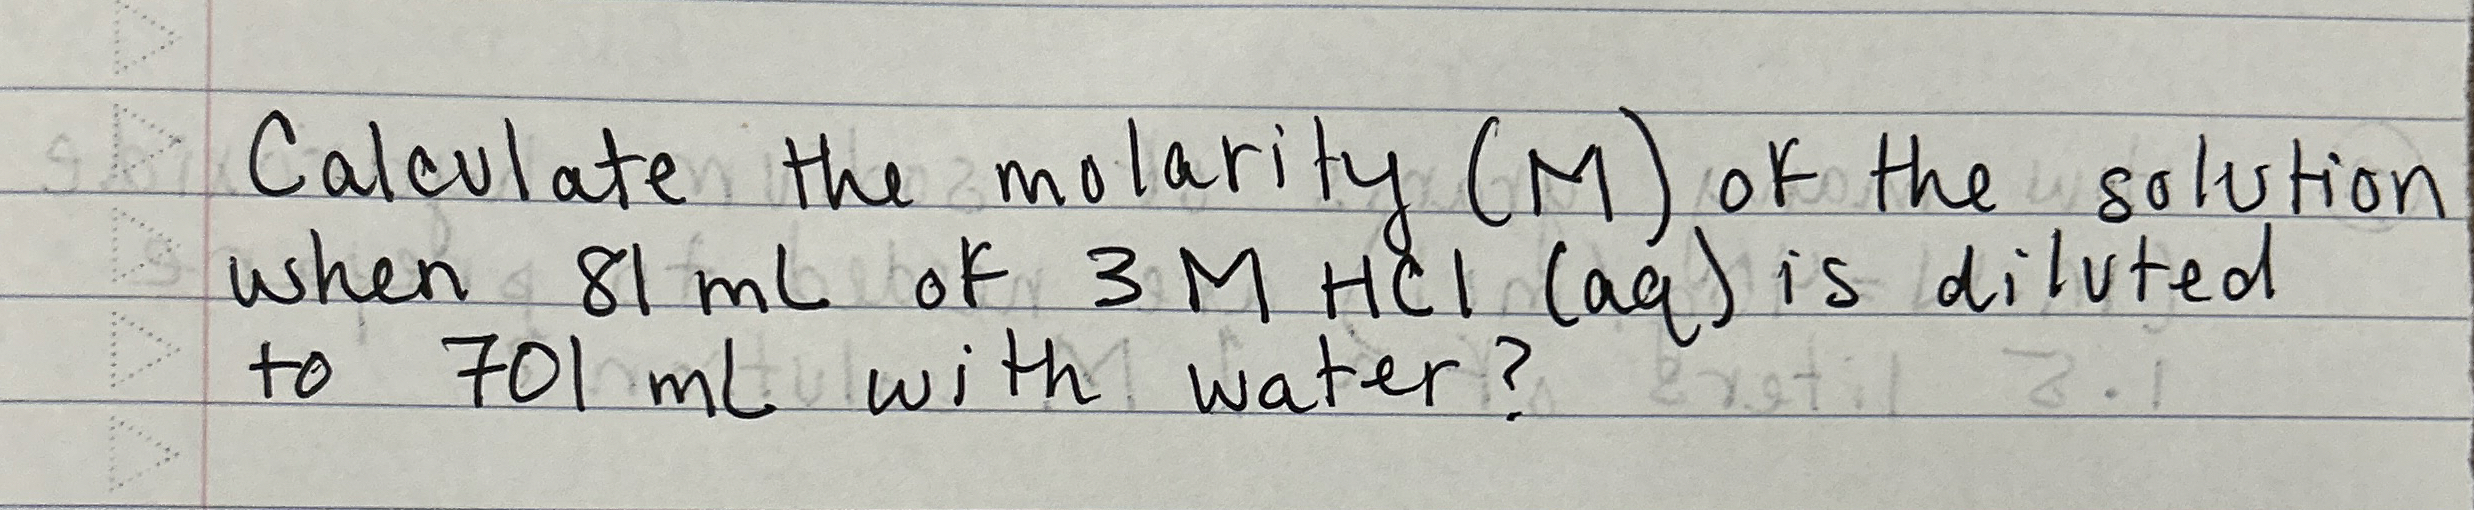 Calculate the molarity (M) of the solution
when 81 mL of 3 M HCl (aq) is diluted
to 701 mL with water?